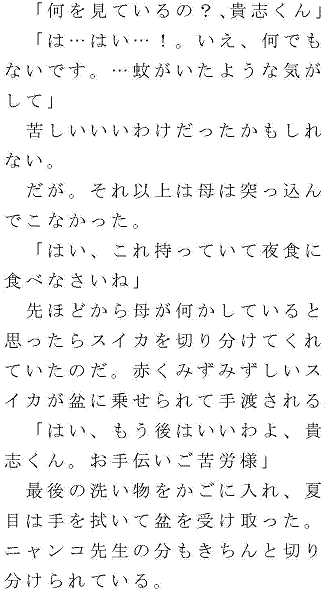 「何を見ているの？、貴志くん」
「は…はい…！。いえ、何でも
ないです。…蚊がいたような気が
して」
苦しいいいわけだったかもしれ
ない。
だが。それ以上は母は突っ込ん
でこなかった。
「はい、これ持っていて夜食に
食べなさいね」
先ほどから母が何かしていると
思ったらスイカを切り分けてくれ
ていたのだ。赤くみずみずしいス
イカが盆に乗せられて手渡される
「はい、もう後はいいわよ、貴
志くん。お手伝いご苦労様」
最後の洗い物をかごに入れ、夏
目は手を拭いて盆を受け取った。
ニャンコ先生の分もきちんと切り
分けられている。